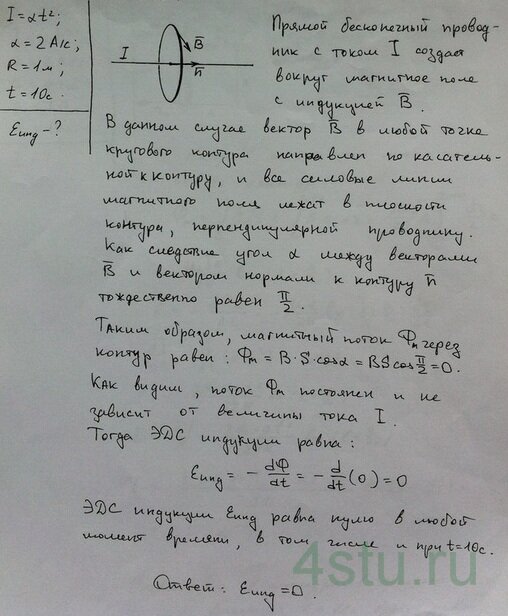 I = αt²;
α = 2 А/с;
R = 1 м;
t = 10 с.
Eинд - ?
I
B̅
n̅
Прямой бесконечный провод-
ник с током I создаёт
вокруг магнитное поле
с индукцией B̅.
В данном случае вектор B̅ в любой точке
кругового контура направлен по касатель-
ной к контуру, и все силовые линии
магнитного поля лежат в плоскости
контура, перпендикулярной проводнику.
Как следствие угол α между векторами
B̅ и вектором нормали к контуру n̅
тождественно равен π/2.
Таким образом, магнитный поток Фm через
контур равен: Фm = B·S·cosα = BS cos π/2 = 0.
Как видим, поток Фm постоянен и не
зависит от величины тока I.
Тогда ЭДС индукции равна:
Eинд = - dФ/dt = - d/dt (0) = 0
ЭДС индукции Eинд равна нулю в любой
момент времени, в том числе и при t=10с.
4stu.ru
Ответ: Eинд = 0.